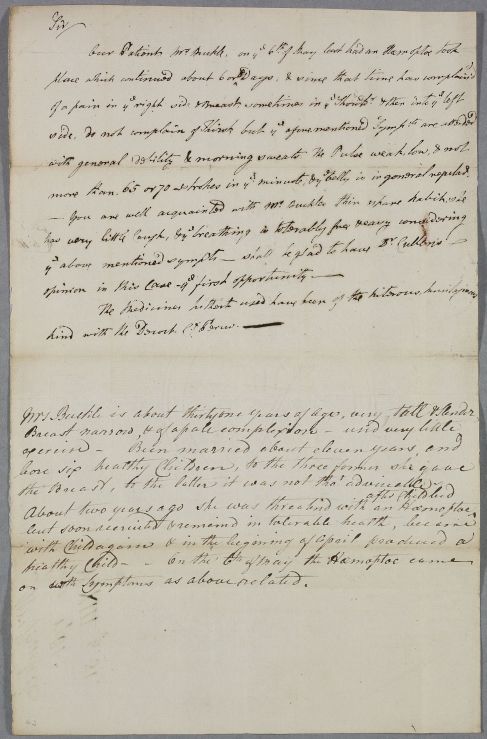 Sir/
Our Patient Mrs Buckle, on ye 6th of May last had an Hæmoptoe took
place which continued about 6 or 7 Days, & since that time has complain'd
of a pain in ye right side & Breast sometimes in ye & then into ye left
side, do not complain of Thirst but ye aforementioned Sympts are attended
with general debility & morning sweats the Pulse weak, low, & not
more than 65 or 70 strokes in ye minute, & ye belly is in general regular.
— You are well acquainted with Mrs Buckles thin spare habit, she
has very little Cough, & ye breathing is tolerably free & easy considering
ye above mentioned sympts — shall be glad to have Dr Cullens
opinion in this Case ye first opportunity —
The Medicines hitherto used have been of the nitrous,
kind with the Decoct Ct Peruv. —
Mrs Buckle is about thirty one years of age, very tall & slender
Breast narrow, & of a pale complexion — used very little
exercise — Been married about eleven years, and
bore six healthy Children, to the three former she gave
the Breast, to the latter it was not tho't adviseable —
after Child bed
About two years ago she was threatned with an Hæmoptoe,
but soon recovered & remain'd in tolerable heath, became
with Child again & in the begining of April produced a
healthy Child — On the 6th of May the Hæmoptoe came
on with Symptoms as above related.